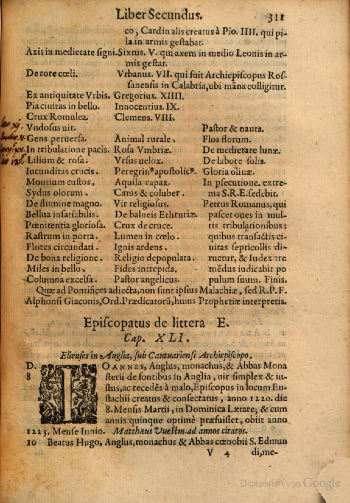 Liber Secundus. 311
co, Cardin alis creatus à Pio. IIII. qui pi-
la in armis gestabat.
Axis in medietate signi. Sixtus. V. qui axem in medio Leonis in ar-
mis gestar.
De rore cœli. Vrbanus. VII. qui fuit Archiepiscopus Ros-
sanensis in Calabria, ubi mãna colligitur.
Ex antiquitate Vrbis. Gregorius. XIIII.
Pia ciuitas in bello. Innocentius. IX.
Crux Romulea. Clemens. VIII.
Vndosus uir. Pastor & nauta.
Gens peruersa. Animal rurale. Flos florum.
In tribulatione pacis. Rosa Vmbriæ. De medietate lunæ.
Lilium & rosa. Vrsus uelox. De labore solis.
Iucunditas crucis. Peregrin⁹ apostolic⁹. Gloria oliuæ.
Montium custos. Aquila rapax. In psecutione. extre-
Sydus olorum. Canis & coluber. ma S.R.E. sedebit.
De flumine magno. Vir religiosus. Petrus Romanus, qui
Bellua insatiabilis. De balneis Ethruriæ. pascet oues in mul-
Pœnitentia gloriosa. Crux de cruce. tis tribulationibus:
Rastrum in porta. Lumen in cœlo. quibus transactis ci-
Flores circundati. Ignis ardens. uitas septicollis di-
De bona religione. Religio depopulata. ruetur, & Iudex tre
Miles in bello. Fides intrepida. mẽdus iudicabit po
Columna excelsa. Pastor angelicus. pulum suum. Finis.
Quæ ad Pontifices adiecta, non sunt ipsius Malachiæ, sed R.P.F.
Alphonsi Giaconis, Ord. Prædicatorũ, huius Prophetiæ interpretis.
Episcopatus de littera E.
Cap. XLI.
Elienses in Anglia, sub Cantuariensi Archiepiscopo.
D. IOANNES, Anglus, monachus, & Abbas Mona
8 sterii de fontibus in Anglia, uir simplex & iu-
stus, ac recedẽs à malo, Episcopus in locum Eu-
stachii creatus & consecratus, anno 1220. die
8. Mensis Martii, in Dominica Lætare; & cum
annis quinque optimè præfuisset, obiit anno
1225. Mense Iunio. Matthæus Vuestm. ad annos citatos.
10 Beatus Hugo, Anglus, monachus & Abbas cœnobii S. Edmun
V 4 di, me-